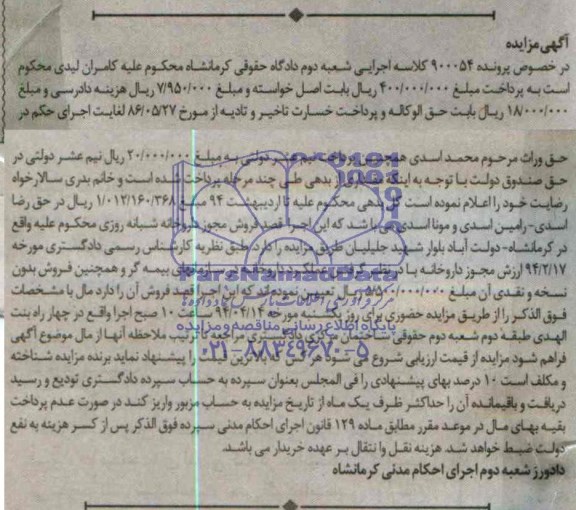 آگهی مزایده
در خصوص پرونده ۹۰۰۰۵۴ کلاسه اجرایی شعبه دوم دادگاه حقوقی کرمانشاه محکوم علیه کامران لیدی محکوم
است به پرداخت مبلغ ۴۰۰/۰۰۰/۰۰۰ ریال بابت اصل خواسته و مبلغ ۷/۹۵۰/۰۰۰ ریال هزینه دادرسی و مبلغ
۱۸/۰۰۰/۰۰۰ ریال بابت حق الوکاله و پرداخت خسارت تاخیر و تادیه از مورخ ۸۶/۰۵/۲۷ لغایت اجرای حکم در
حق وراث مرحوم محمد اسدی همچنین پرداخت نیم عشر دولتی به مبلغ ۲۰/۰۰۰/۰۰۰ ریال نیم عشر دولتی در
حق صندوق دولت با توجه به اینکه از بدهی طی چند مرحله پرداخت شده است و خانم بدری سالارخواه
رضایت خود را اعلام نموده است کل بدهی محکوم علیه تا اردیبهشت ۹۴ مبلغ ۱/۰۱۲/۱۶۰/۳۶۸ ریال در حق رضا
اسدی - رامین اسدی و مونا اسدی می باشد که این اجرا قصد فروش مجوز داروخانه شبانه روزی محکوم علیه واقع
در کرمانشاه - دولت آباد بلوار شهید جلیلیان طریق مزایده را دارد طبق نظریه کارشناس رسمی دادگستری مورخه
۹۴/۲/۱۷ ارزش مجوز داروخانه با در نظر گرفتن عملکرد داروخانه و بیمه گر و همچنین فروش بدون
نسخه و نقدی آن مبلغ ریال تعیین نموده اند که این اجرا قصد فروش آن را دارد مال با مشخصات
فوق الذکر را از طریق مزایده حضوری برای روز یکشنبه مورخه ۹۴/۰۴/۱۴ ساعت ۱۰ صبح اجرا واقع در چهار راه بنت
الهدی طبقه دوم شعبه دوم حقوقی ساختمان دادگستری مراجعه تا ترتیب ملاحظه آنها از مال موضوع آگهی
فراهم شود مزایده از قیمت ارزیابی شروع می شود هر کس که بالاترین قیمت را پیشنهاد نماید برنده مزایده شناخته
و مکلف است ۱۰ درصد بهای پیشنهادی را فی المجلس بعنوان سپرده به حساب سپرده دادگستری تودیع و رسید
دریافت و باقیمانده آن را حداکثر ظرف یک ماه از تاریخ مزایده به حساب مزبور واریز کند در صورت عدم پرداخت
بقیه بهای مال در موعد مقرر مطابق ماده ۱۲۹ قانون اجرای احکام مدنی سپرده فوق الذکر پس از کسر هزینه به نفع
دولت ضبط خواهد شد. هزینه نقل و انتقال بر عهده خریدار می باشد.
دادورز شعبه دوم اجرای احکام مدنی کرمانشاه
پایگاه اطلاع رسانی مناقصه و مزایده
۰۲۱-۸۸۳۴۹۶۷۰-۵